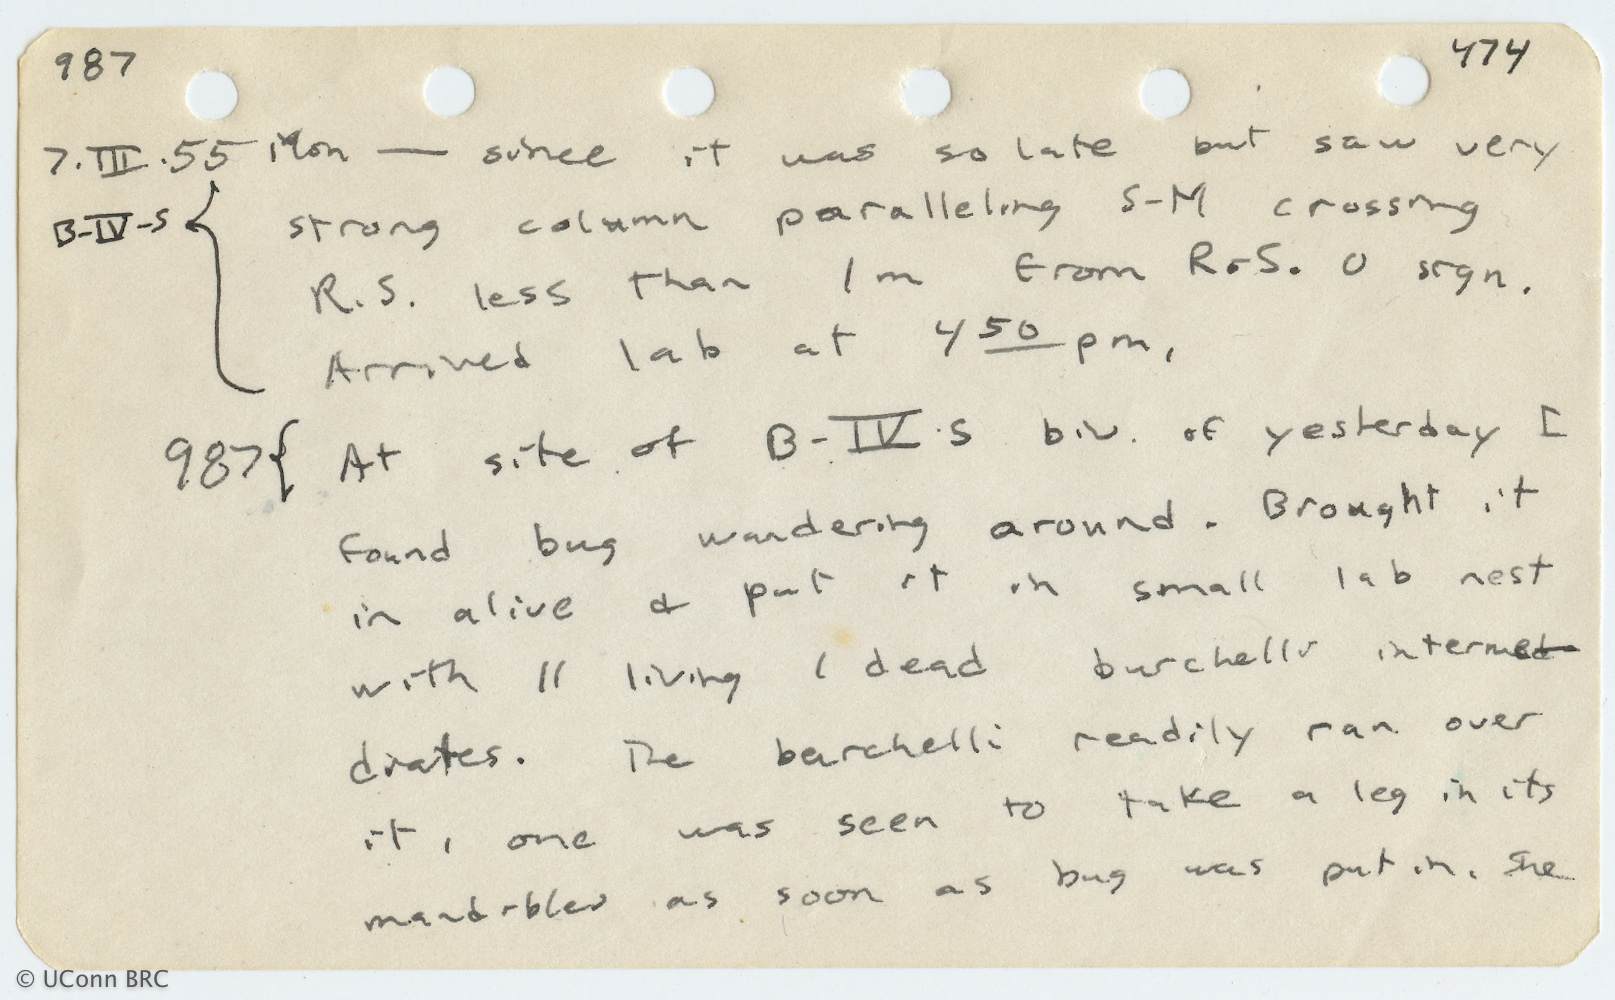 987 474
7.III.55 Mon — since it was so late but saw very
B-IV-S strong column paralleling S-M crossing
R.S. less than 1m from R.S. 0 sign.
Arrived lab at 4 50 pm.
987 At site of B-IV-S biv. of yesterday I
found bug wandering around. Brought it
in alive & put it in small lab nest
with 11 living 1 dead burchelli intermed-
diates. The burchelli readily ran over
it, one was seen to take a leg in its
mandibles as soon as bug was put in. The
© UConn BRC